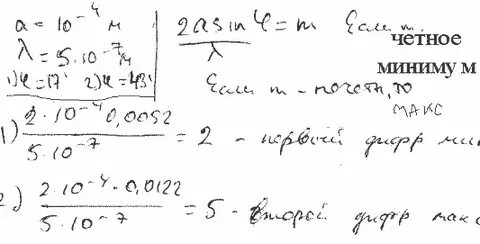 a = 10⁻⁴ м
λ = 5·10⁻⁷ м
1) φ = 17' 2) φ = 43'
2a sin φ / λ = m Если m
четное
минимум
Если m - нечетн, то
макс
1) 2·10⁻⁴ 0,0052 / 5·10⁻⁷ = 2 - первый дифр мин
2) 2·10⁻⁴·0,0122 / 5·10⁻⁷ = 5 - второй дифр макс